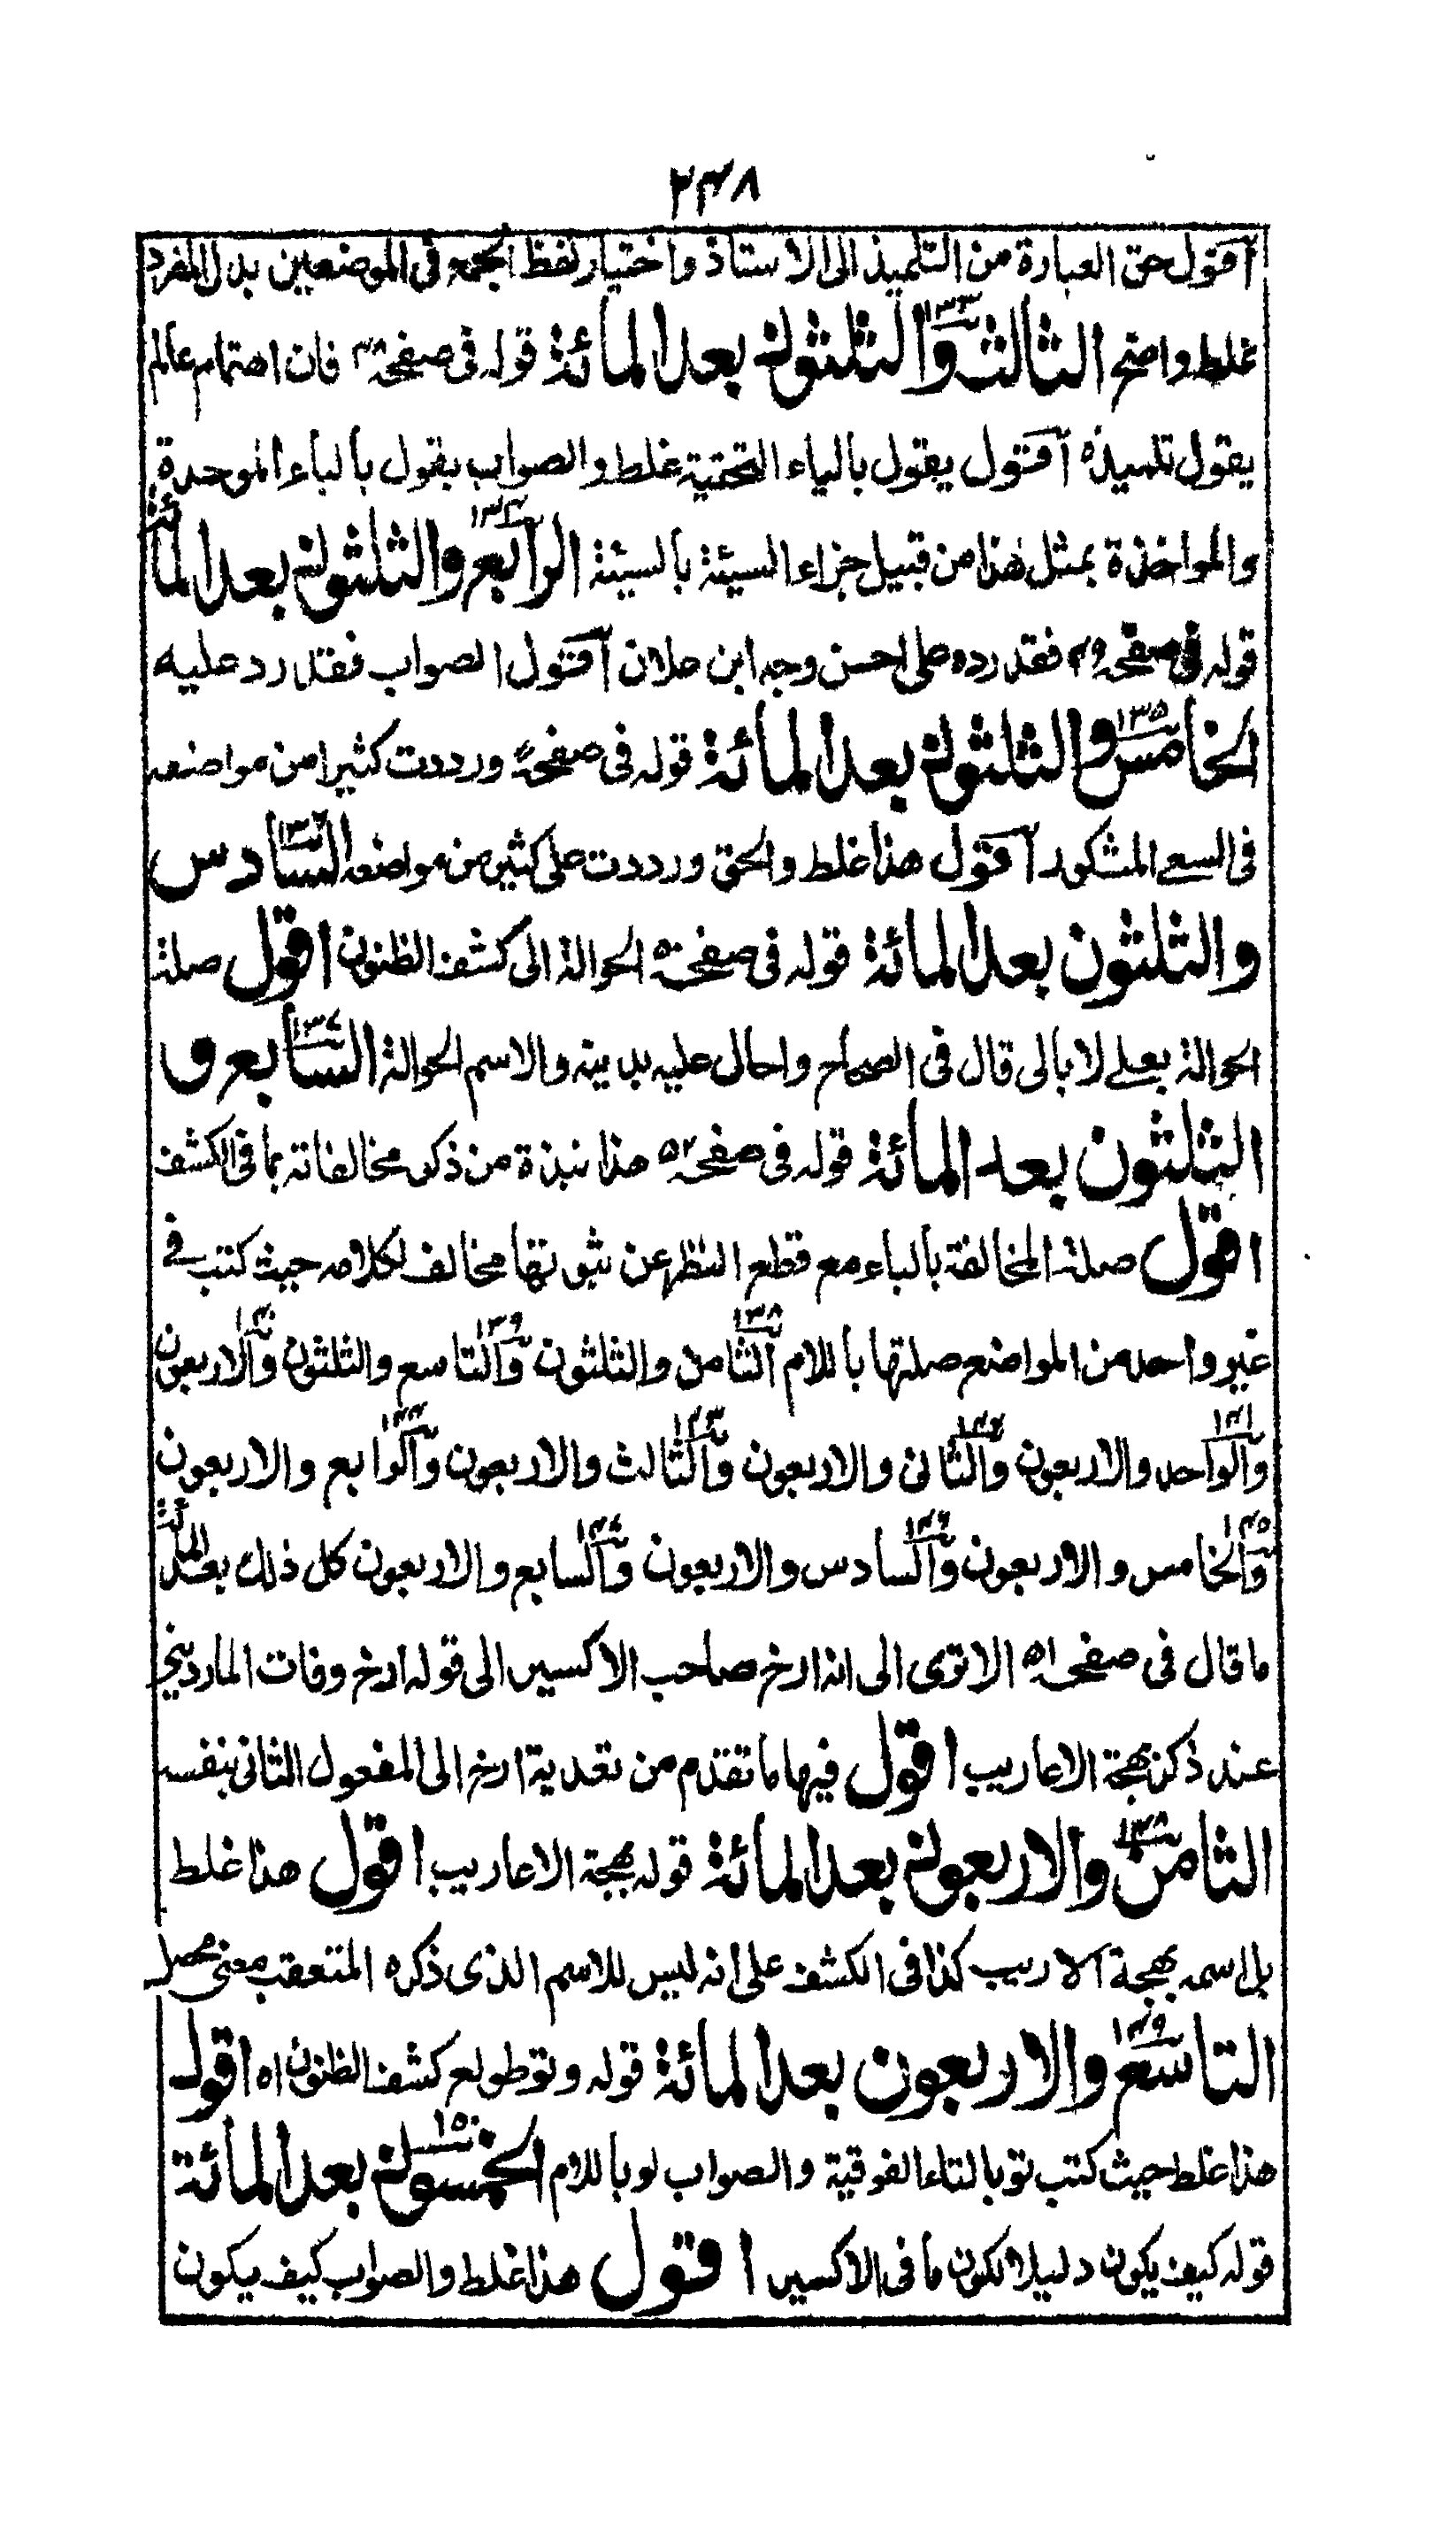 ٢٣٨
اقول حق العبارة من التلميذ الى الاستاذ واختيار لفظ الجمع فى الموضعين بدل المفرد
غلط واضح الثالث ١٣٣ والثلثون بعد المائة قوله فى صفحة ٤٨ فان اهتمام عالم
يقول تلميذه اقول يقول بالياء التحتية غلط والصواب بقول بالباء الموحدة
والمواخذة بمثل هذا من قبيل جزاء السيئة بالسيئة الرابع ١٣٤ والثلثون بعد المائة
قوله فى صفحة ٤٩ فقد رده على احسن وجه ابن علان اقول الصواب فقد رد عليه
الخامس ١٣٥ والثلثون بعد المائة قوله فى صفحة ورددت كثيرا من مواضعه
فى السعى المشكور اقول هذا غلط والحق ورددت على كثير من مواضعه السادس ١٣٦
والثلثون بعد المائة قوله فى صفحة ٥٠ الحوالة الى كشف الظنون اقول صلة
الحوالة بعلى لا بالى قال فى الصحاح واحال عليه بدينه والاسم الحوالة السابع ١٣٧ و
الثلثون بعد المائة قوله فى صفحة ٥٢ هذا نبذة من ذكر مخالفاته بما فى الكشف
اقول صلة المخالفة بالباء مع قطع النظر عن ثبوتها مخالف لكلامه حيث كتب فى
غير واحد من المواضع صلتها باللام الثامن ١٣٨ والثلثون والتاسع ١٣٩ والثلثون والاربعون ١٤٠
والواحد ١٤١ والاربعون والثانى ١٤٢ والاربعون والثالث ١٤٣ والاربعون والرابع ١٤٤ والاربعون
والخامس ١٤٥ والاربعون والسادس ١٤٦ والاربعون والسابع ١٤٧ والاربعون كل ذلك بعد المائة
ما قال فى صفحة ٥١ الا ترى الى انه ارخ صاحب الاكسير الى قوله ارخ وفات الماردينى
عند ذكر بهجة الاعاريب اقول فيها ما تقدم من تعدية ارخ الى المفعول الثانى بنفسه
الثامن ١٤٨ والاربعون بعد المائة قوله بهجة الاعاريب اقول هذا غلط
بل اسمه بهجة الاريب كذا فى الكشف على انه ليس للاسم الذى ذكره المتعقب معنى محصل
التاسع ١٤٩ والاربعون بعد المائة قوله وتوطولع كشف الظنون اه اقول
هذا غلط حيث كتب تو بالتاء الفوقية والصواب لو باللام الخمسون ١٥٠ بعد المائة
قوله كيف يكون دليلا لكون ما فى الاكسير اقول هذا غلط والصواب كيف يكون